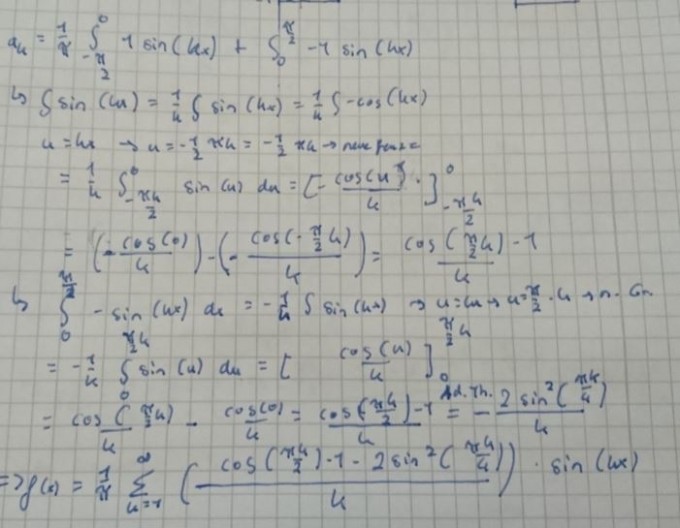 a_k = 1/π ∫_{-π/2}^{0} 1 sin(kx) + ∫_{0}^{π/2} -1 sin(kx)
↳ ∫ sin(kx) = 1/k ∫ sin(kx) = 1/k ∫ -cos(kx)
u = kx → u = -1/2 πk = -1/2 πk → neue
= 1/k ∫_{-πk/2}^{0} sin(u) du = [-cos(u)/k ·]_{-πk/2}^{0}
= (-cos(0)/k) - (-cos(-π/2 k)/k) = cos(π/2 k) - 1 / k
↳ ∫_{0}^{π/2} -sin(kx) dx = -1/k ∫ sin(kx) → u = kx → u = π/2 · k → n. Gr.
= -1/k ∫_{0}^{π/2 k} sin(u) du = [cos(u)/k]_{0}^{π/2 k}
= cos(π/2 k)/k - cos(0)/k = cos(πk/2) - 1 / k = Ad. Th. - 2 sin²(πk/4)/k
=> f(x) = 1/π ∑_{k=1}^{∞} (cos(πk/2) - 1 - 2 sin²(πk/4) / k) · sin(kx)